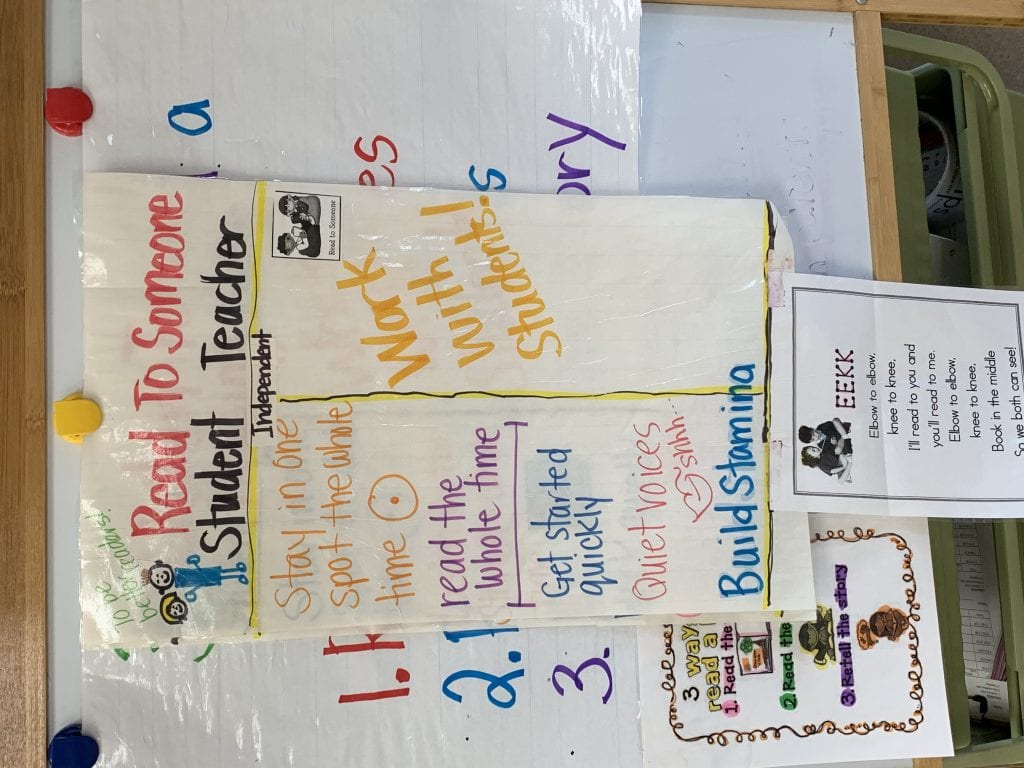 To be
better readers!
Read To Someone
Student Teacher
Independent
Stay in one
spot the whole
time
read the
whole time
Get started
quickly
Quiet voices
shhh...
Build Stamina
Work
with
Students!
Read to Someone
a
1.
es
2.
s
3.
ory
EEKK
Elbow to elbow,
knee to knee,
I'll read to you and
you'll read to me.
Elbow to elbow,
knee to knee,
Book in the middle
So we both can see!
3 way
read a
1. Read the
2. Read the
3. Retell the story